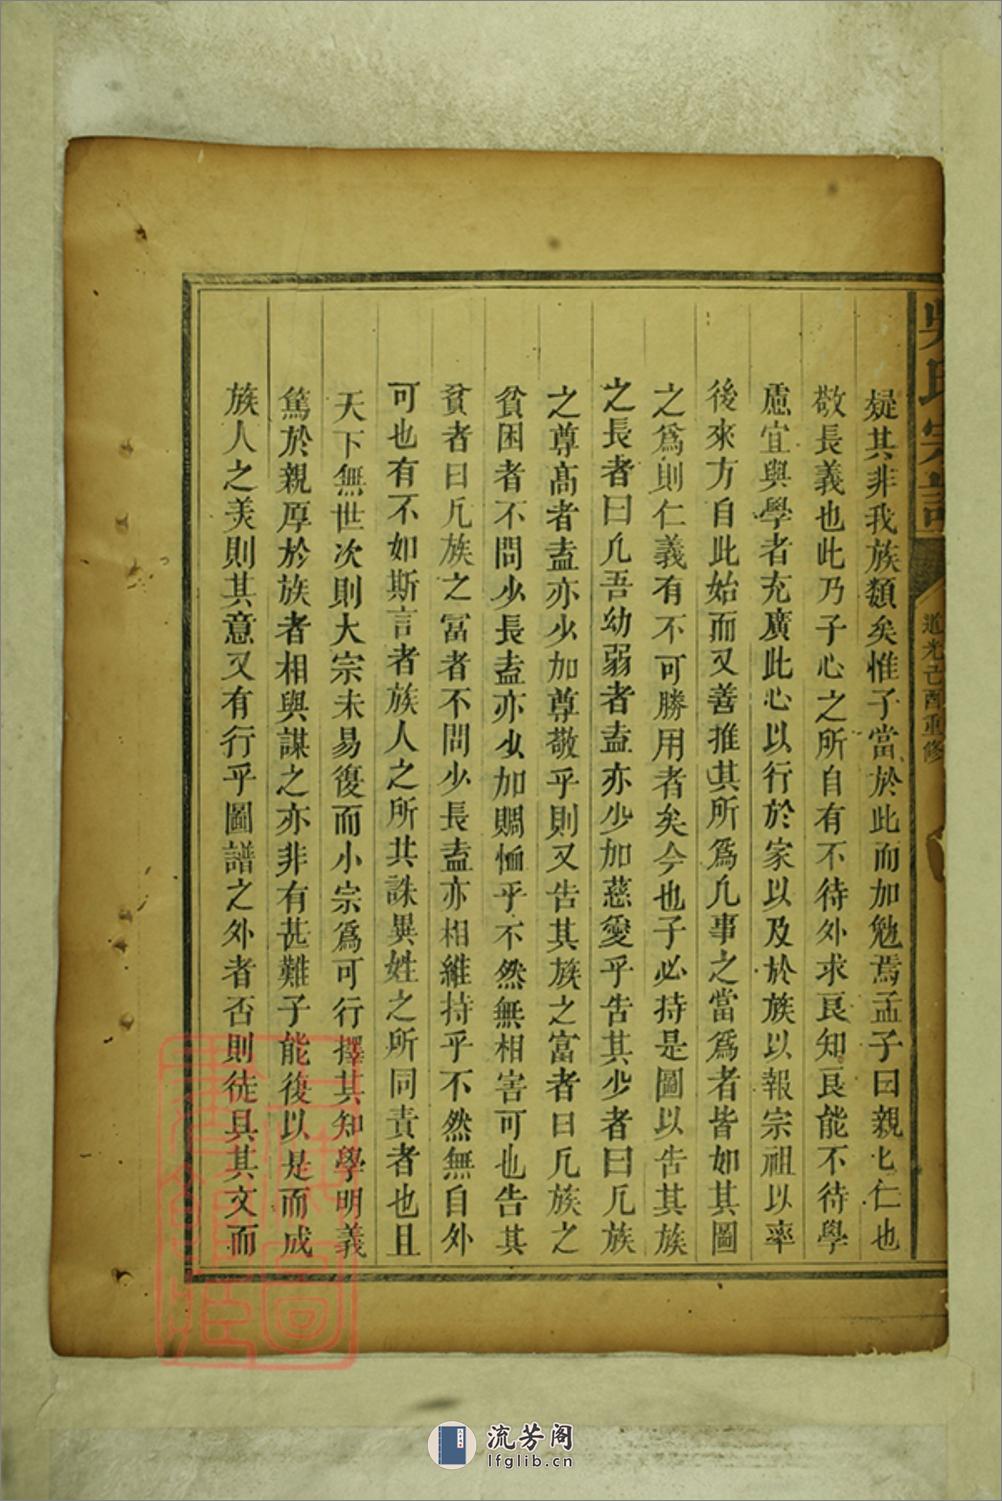 吳氏宗譜
道光己酉重修
疑其非我族類矣惟子當於此而加勉焉孟子曰親匕仁也
敬長義也此乃子心之所自有不待外求良知良能不待學
慮宜與學者充廣此心以行於家以及於族以報宗祖以率
後來方自此始而又善推其所爲凢事之當爲者皆如其圖
之爲則仁義有不可勝用者矣今也子必持是圖以告其族
之長者曰凢吾幼弱者盍亦少加慈愛乎告其少者曰凢族
之尊高者盍亦少加尊敬乎則又告其族之富者曰凢族之
貧困者不問少長盍亦少加賙恤乎不然無相害可也告其
貧者曰凢族之冨者不問少長盍亦相維持乎不然無自外
可也有不如斯言者族人之所共誅異姓之所同責者也且
天下無世次則大宗未易復而小宗爲可行擇其知學明義
篤於親厚於族者相與謀之亦非有甚難子能復以是而成
族人之美則其意又有行乎圖譜之外者否則徒具其文而
流芳阁
lfglib.cn